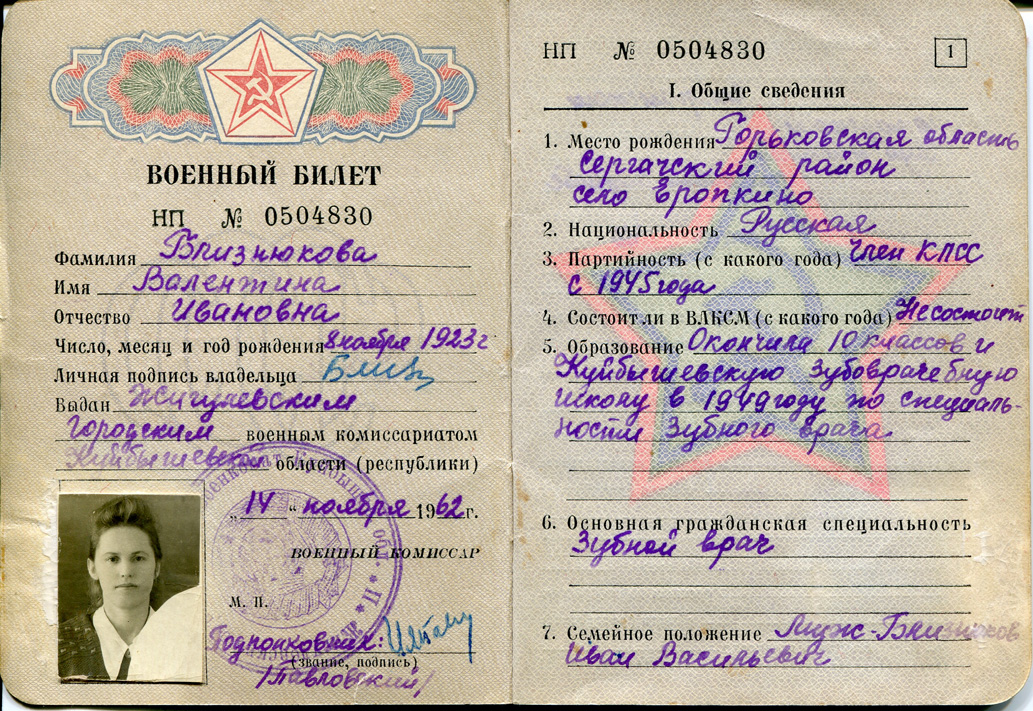 ВОЕННЫЙ БИЛЕТ
НП № 0504830
Фамилия Близнюкова
Имя Валентина
Отчество Ивановна
Число, месяц и год рождения 8 ноября 1923 г
Личная подпись владельца Близ
Выдан Жигулевским
городским военным комиссариатом
Куйбышевской области (республики)
„14“ ноября 1962 г.
ВОЕННЫЙ КОМИССАР
М. П.
Подполковник:
(звание, подпись)
/Павловский/
НП № 0504830
1
I. Общие сведения
1. Место рождения Горьковская область
Сергачский район
село Еропкино
2. Национальность Русская
3. Партийность (с какого года) Член КПСС
с 1945 года
4. Состоит ли в ВЛКСМ (с какого года) Не состоит
5. Образование Окончила 10 классов и
Куйбышевскую зубоврачебную
школу в 1949 году по специаль-
ности Зубного врача
6. Основная гражданская специальность
Зубной врач
7. Семейное положение Муж - Близнюков
Иван Васильевич